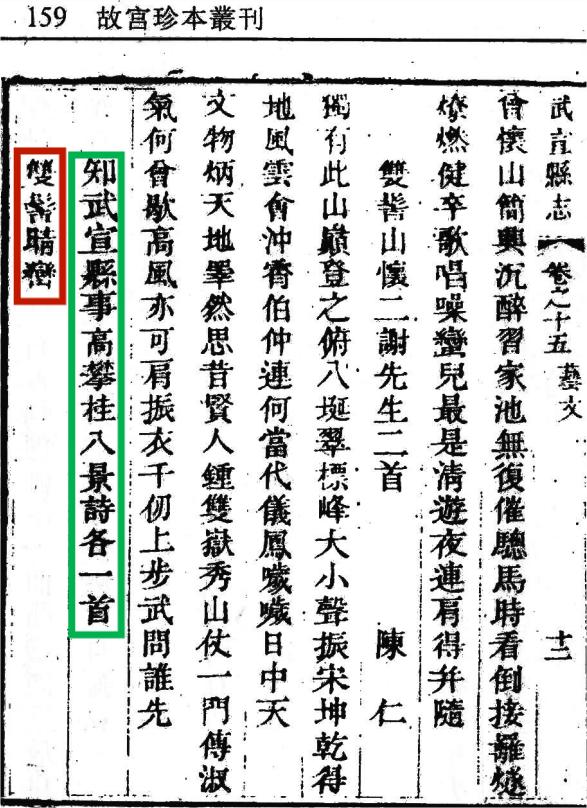 159 故宫珍本叢刊
武宣縣志 卷之十五 藝文 十二
曾懷山簡興沉醉習家池無復催驄馬時看倒接䍦燧
燎燃健卒歌唱噪蠻兒最是清遊夜連肩得并隨
雙髻山懷二謝先生二首 陳仁
獨有此山巔登之俯八埏翠標峰大小聲振宋坤乾得
地風雲會沖霄伯仲連何當代儀鳳噦噦日中天
文物炳天地睪然思昔賢人鍾雙嶽秀山仗一門傳淑
氣何曾歇高風亦可肩振衣千仞上步武問誰先
知武宣縣事高攀桂八景詩各一首
雙髻晴巒